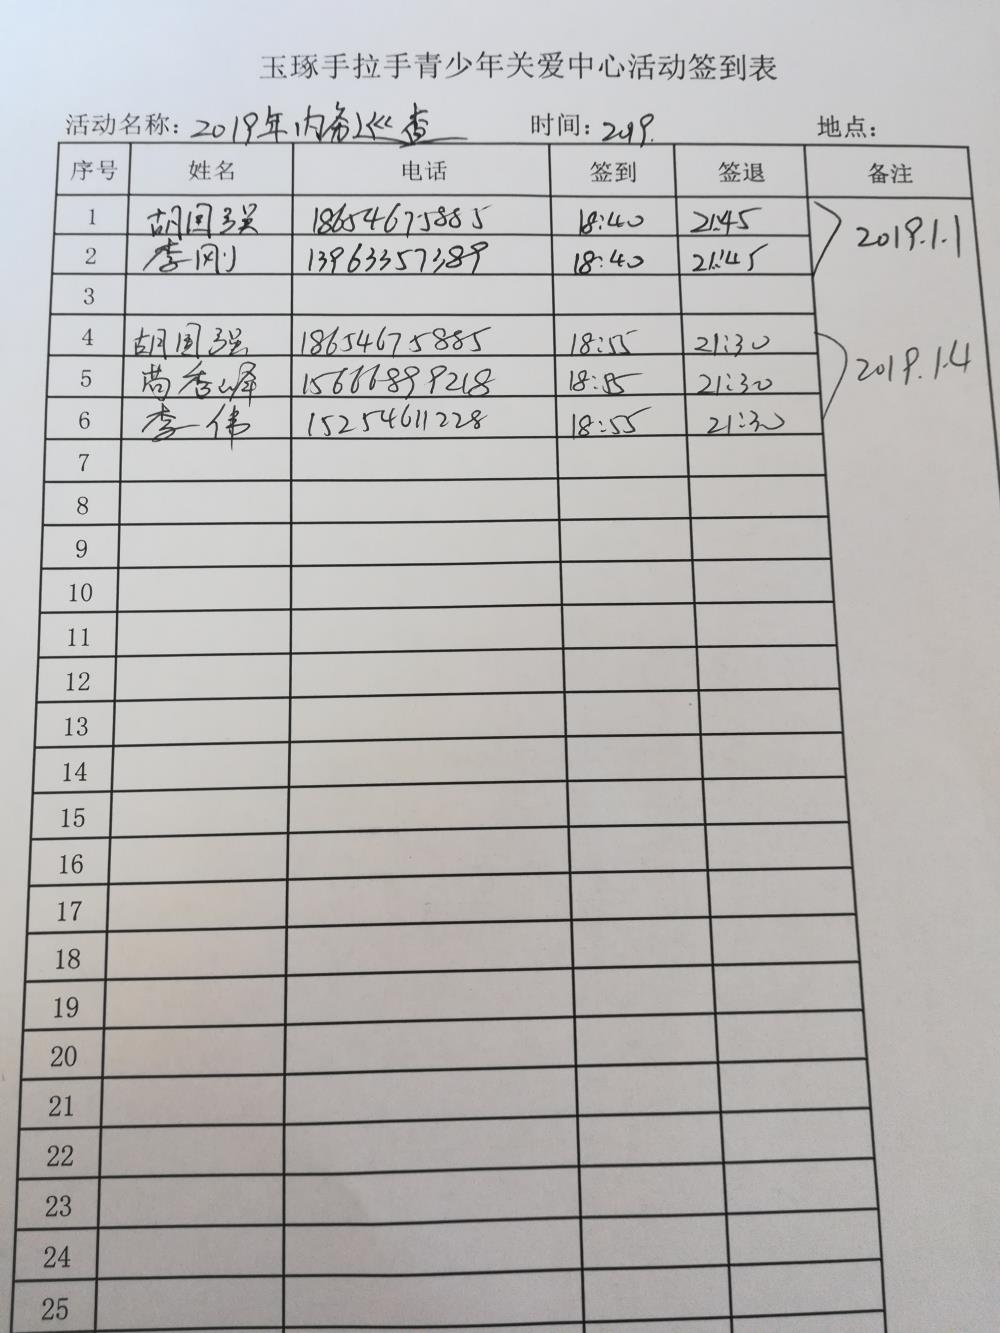 玉琢手拉手青少年关爱中心活动签到表
活动名称: 2019年内务巡查 时间: 2019. 地点:
序号 姓名 电话 签到 签退 备注
1 胡国强 18654675885 18:40 21:45 2019.1.1
2 李刚 13963357389 18:40 21:45
3
4 胡国强 18654675885 18:55 21:30 2019.1.4
5 15666899218 18:55 21:30
6 李伟 15254611228 18:55 21:30
7
8
9
10
11
12
13
14
15
16
17
18
19
20
21
22
23
24
25